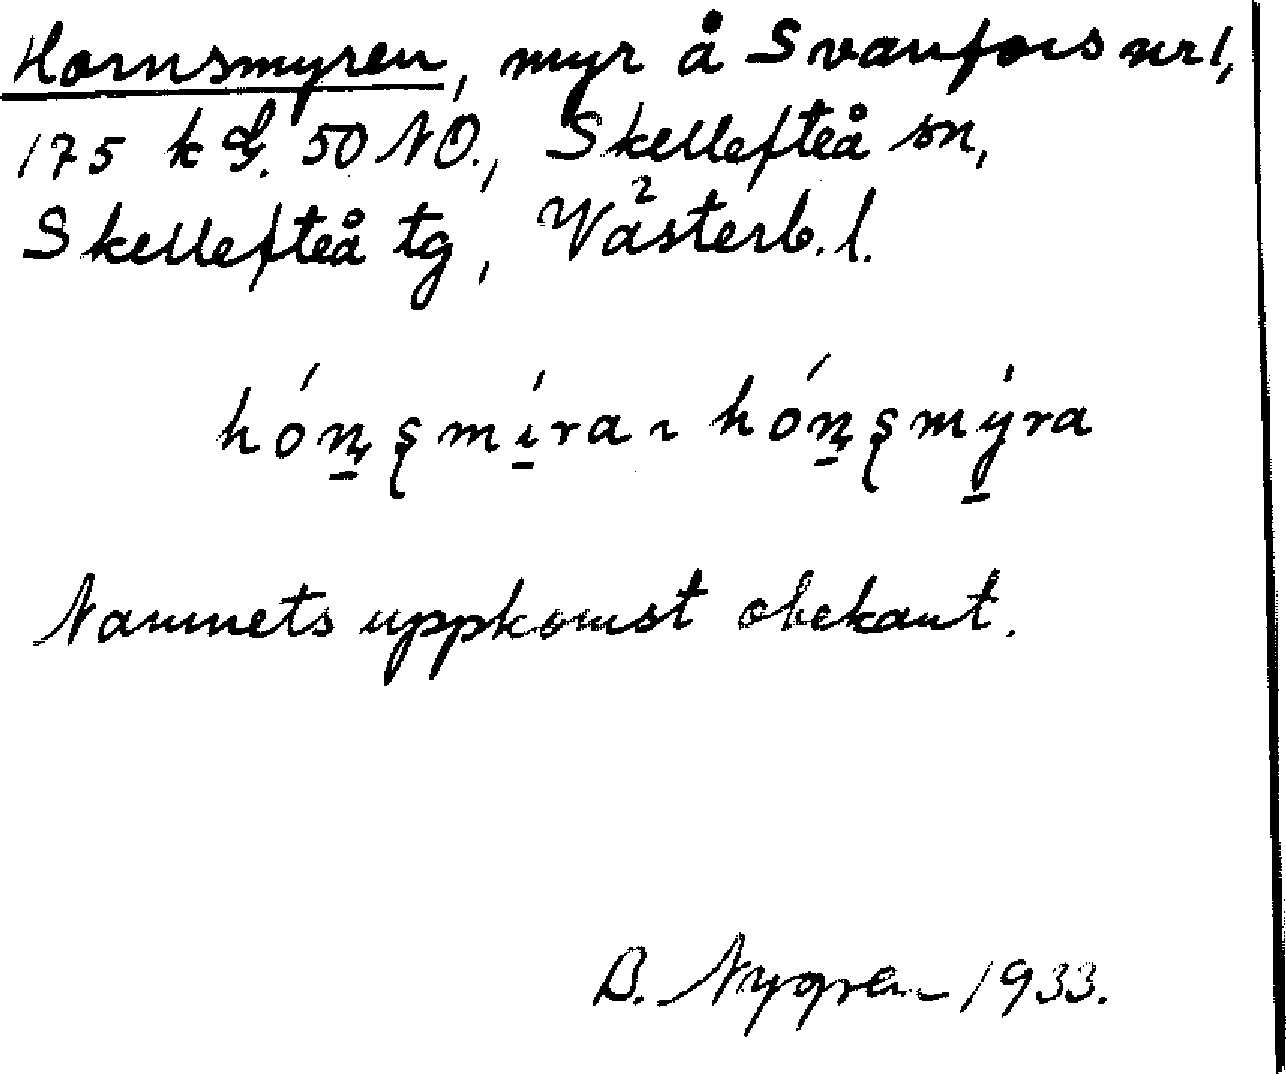 Hornsmyren, myr å Svanfors nr 1,
175 k G. 50 NO., Skellefteå sn,
Skellefteå tg, Västerb. l.
hón̠ʂmı̠́ra ~ hón̠ʂmý̠ra
Namnets uppkomst obekant.
B. Nygren 1933.